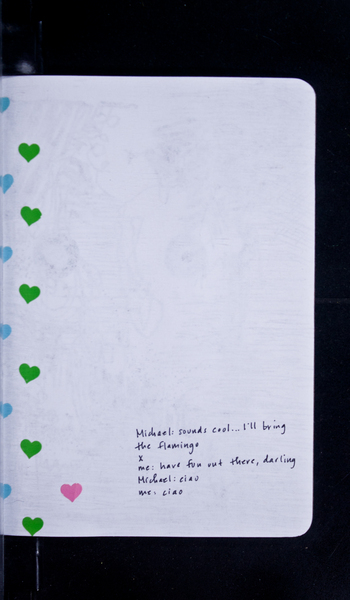 Michael: sounds cool... I'll bring
the flamingo
x
me: have fun out there, darling
Michael: ciao
me: ciao